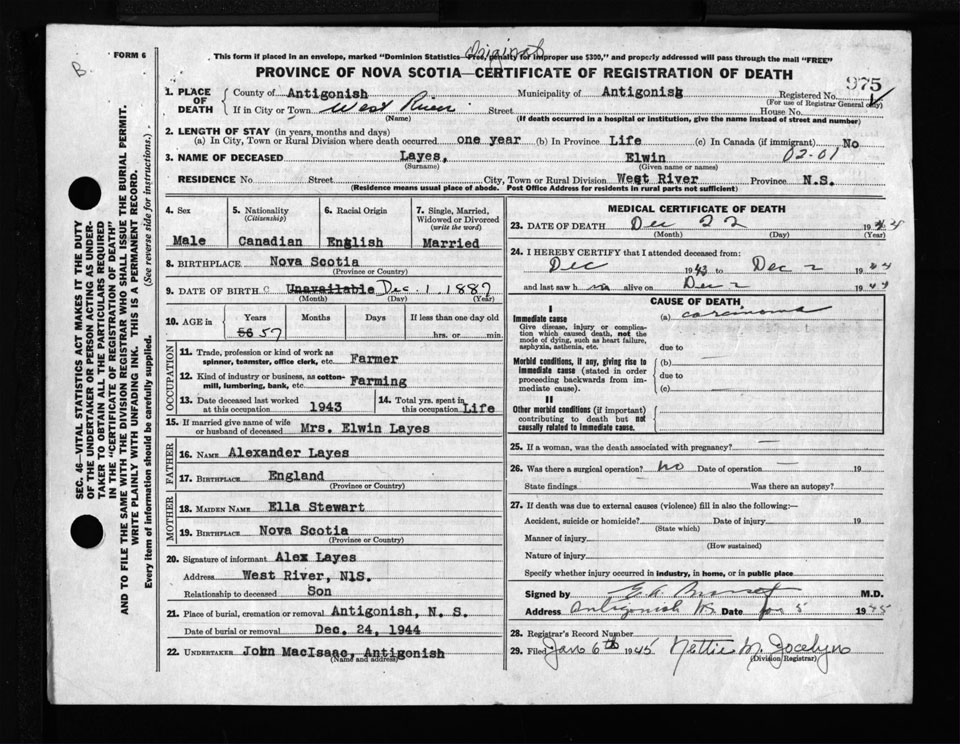 FORM 6
B.
Original
This form if placed in an envelope, marked "Dominion Statistics—Free, penalty for improper use $300," and properly addressed will pass through the mail "FREE"
PROVINCE OF NOVA SCOTIA—CERTIFICATE OF REGISTRATION OF DEATH
975
1. PLACE OF DEATH County of Antigonish Municipality of Antigonish Registered No.
(For use of Registrar General only)
If in City or Town West River Street House No.
(Name) (If death occurred in a hospital or institution, give the name instead of street and number)
2. LENGTH OF STAY (in years, months and days)
(a) In City, Town or Rural Division where death occurred one year (b) In Province Life (c) In Canada (if immigrant) No
02-01
3. NAME OF DECEASED Layes, Elwin
(Surname) (Given name or names)
RESIDENCE No Street City, Town or Rural Division West River Province N.S.
(Residence means usual place of abode. Post Office Address for residents in rural parts not sufficient)
4. Sex 5. Nationality (Citizenship) 6. Racial Origin 7. Single, Married, Widowed or Divorced (write the word)
Male Canadian English Married
8. BIRTHPLACE Nova Scotia
(Province or Country)
9. DATE OF BIRTH Unavailable Dec. 1. 1887
(Month) (Day) (Year)
10. AGE in Years Months Days If less than one day old
56 57 hrs. or min.
OCCUPATION
11. Trade, profession or kind of work as spinner, teamster, office clerk, etc. Farmer
12. Kind of industry or business, as cotton-mill, lumbering, bank, etc. Farming
13. Date deceased last worked at this occupation 1943 14. Total yrs. spent in this occupation Life
15. If married give name of wife or husband of deceased Mrs. Elwin Layes
FATHER
16. NAME Alexander Layes
17. BIRTHPLACE England
(Province or Country)
MOTHER
18. MAIDEN NAME Ella Stewart
19. BIRTHPLACE Nova Scotia
(Province or Country)
20. Signature of informant Alex Layes
Address West River, N1S.
Relationship to deceased Son
21. Place of burial, cremation or removal Antigonish, N. S.
Date of burial or removal Dec. 24, 1944
22. UNDERTAKER John MacIsaac, Antigonish
(Name and address)
MEDICAL CERTIFICATE OF DEATH
23. DATE OF DEATH Dec 22 1944
(Month) (Day) (Year)
24. I HEREBY CERTIFY that I attended deceased from:
Dec 1943 to Dec 2 1944
and last saw h im alive on Dec 2 1944
CAUSE OF DEATH
I
Immediate cause (a) carcinoma
Give disease, injury or complication which caused death, not the mode of dying, such as heart failure, asphyxia, asthenia, etc. due to
Morbid conditions, if any, giving rise to immediate cause (stated in order proceeding backwards from immediate cause). (b)
due to
(c)
II
Other morbid conditions (if important) contributing to death but not causally related to immediate cause.
25. If a woman, was the death associated with pregnancy? —
26. Was there a surgical operation? no Date of operation — 19
State findings Was there an autopsy?
27. If death was due to external causes (violence) fill in also the following:
Accident, suicide or homicide? Date of injury 19
(State which)
Manner of injury
(How sustained)
Nature of injury
Specify whether injury occurred in industry, in home, or in public place
Signed by M.D.
Address Antigonish NS Date Jan 5 1945
28. Registrar's Record Number
29. Filed Jan 6th 1945 Nettie M. Jocelyn
(Division Registrar)
SEC. 46—VITAL STATISTICS ACT MAKES IT THE DUTY
OF THE UNDERTAKER OR PERSON ACTING AS UNDER-
TAKER TO OBTAIN ALL THE PARTICULARS REQUIRED
IN THE "CERTIFICATE OF REGISTRATION OF DEATH"
AND TO FILE THE SAME WITH THE DIVISION REGISTRAR WHO SHALL ISSUE THE BURIAL PERMIT.
WRITE PLAINLY WITH UNFADING INK. THIS IS A PERMANENT RECORD.
Every item of information should be carefully supplied. (See reverse side for instructions.)